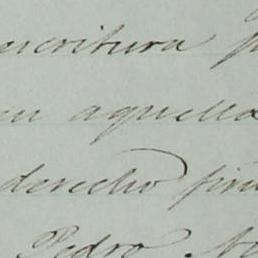 escritura
en aquella
derecho
Pedro